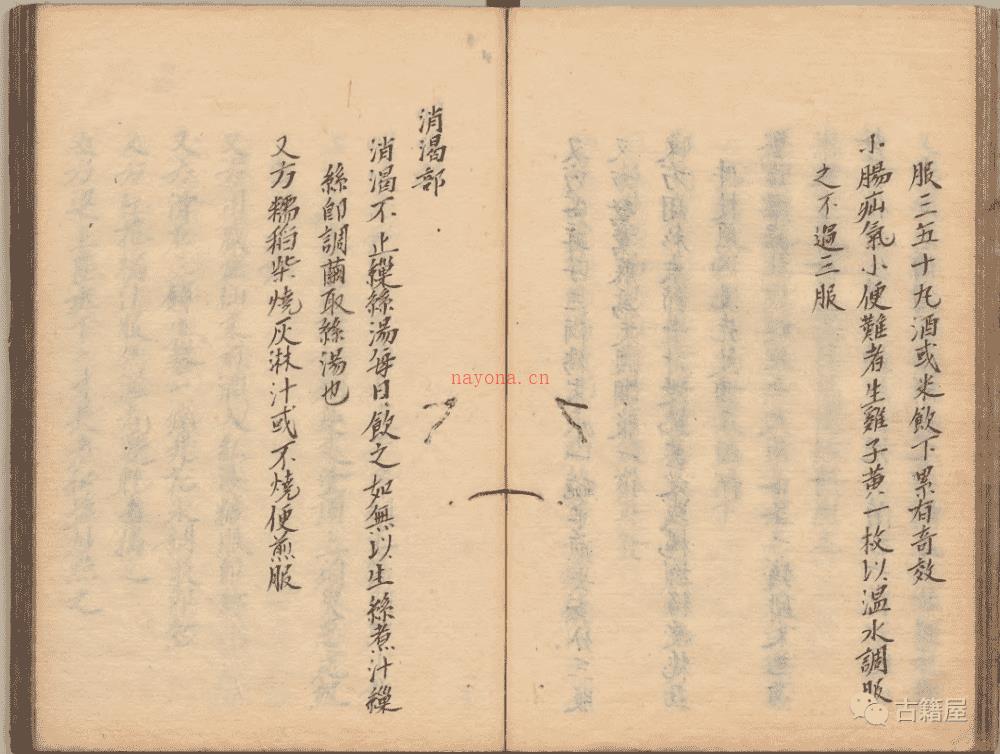 服三五十丸酒或米飲下累有奇效
小腸疝氣小便難者生雞子黃一枚以溫水調服
之不過三服
消渴部
消渴不止繅絲湯每日飲之如無以生絲煮汁繅
絲卽調繭取絲湯也
又方糯稻柴燒灰淋汁或不燒便煎服
nayona.cn
古籍屋